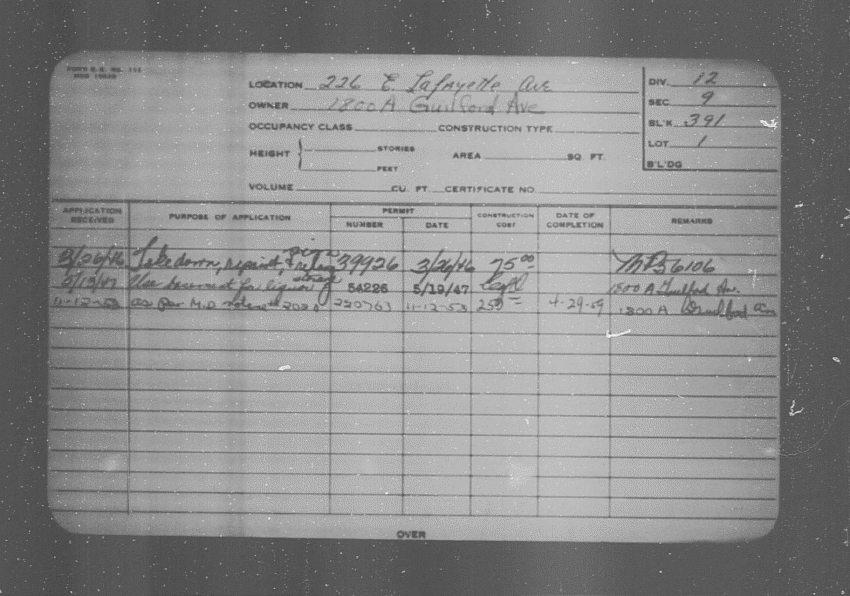 FORM B.E. NO. 115
LOCATION 226 E. Lafayette Ave
OWNER 1800A Guilford Ave
OCCUPANCY CLASS CONSTRUCTION TYPE
HEIGHT { STORIES
FEET
AREA SQ. FT.
VOLUME CU. FT. CERTIFICATE NO.
DIV. 12
SEC. 9
BL'K 391
LOT 1
B'L'DG
APPLICATION RECEIVED PURPOSE OF APPLICATION PERMIT NUMBER DATE CONSTRUCTION COST DATE OF COMPLETION REMARKS
3/26/46 Take down, repaint, & rehang sign 39926 3/26/46 75.00 36106
5/13/47 Use basement for liquor storage 54226 5/19/47 1800 A Guilford Ave.
11-12-53 as per M.O. 220763 11-12-53 250 4-29-59 1800 A Guilford Ave
OVER